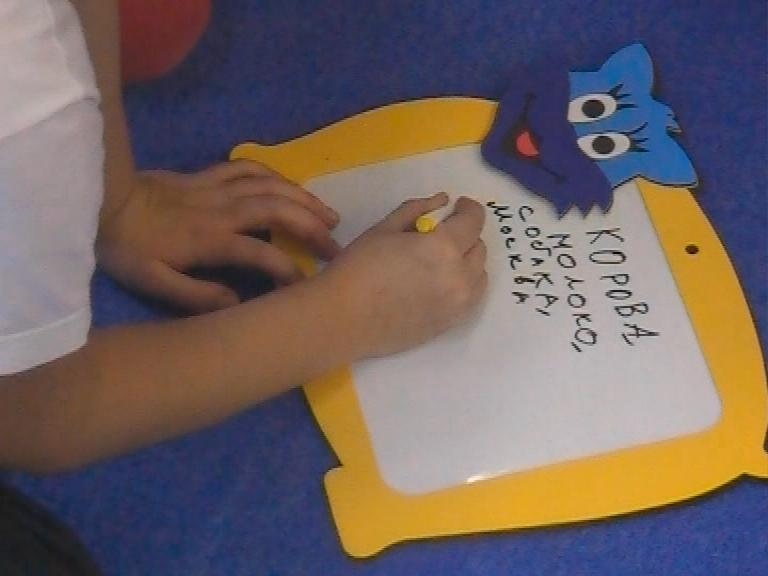 КОРОВА
МОЛОКО,
СОБАКА,
МОСКВА